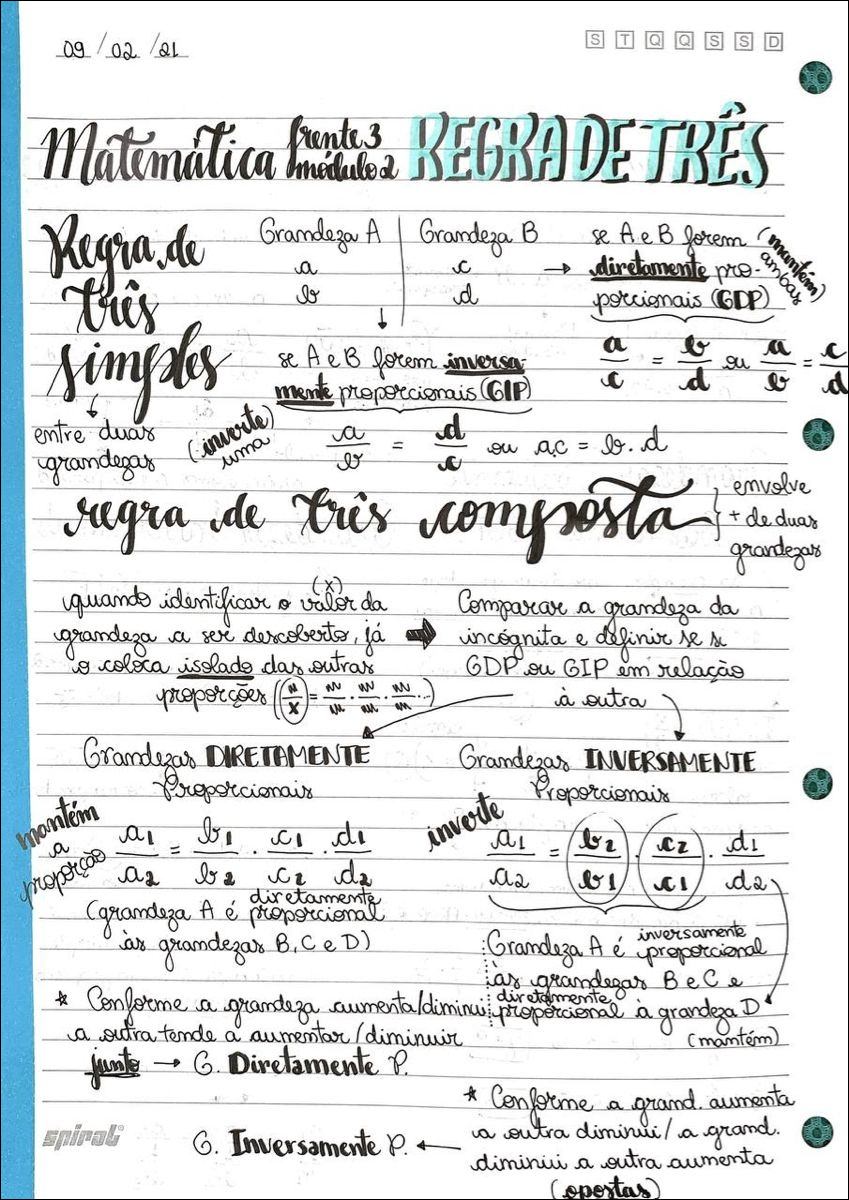 09/02/21
S T Q Q S S D
Matemática frente 3 módulo 2 REGRA DE TRÊS
Regra de
três
simples
entre duas
grandezas
Grandeza A | Grandeza B
a c
b d
→ se A e B forem
diretamente pro-
porcionais (GDP)
(mantém
ambas)
a/c = b/d ou a/b = c/d
↓
se A e B forem inversa-
mente proporcionais (GIP)
(inverte
uma)
a/b = d/c ou a.c = b.d
regra de três composta
envolve
+ de duas
grandezas
quando identificar o valor da
(x)
grandeza a ser descoberto, já
o coloca isolado das outras
proporções
Comparar a grandeza da
incógnita e definir se s
GDP ou GIP em relação
à outra
Grandezas DIRETAMENTE
Proporcionais
mantém
a
proporção
a1/a2 = b1/b2 . c1/c2 . d1/d2
(grandeza A é diretamente proporcional
às grandezas B, C e D)
Grandezas INVERSAMENTE
Proporcionais
inverte
a1/a2 = b2/b1 . c2/c1 . d1/d2
Grandeza A é inversamente proporcional
às grandezas B e C e
diretamente proporcional à grandeza D
(mantém)
* Conforme a grandeza aumenta/diminui
a outra tende a aumentar/diminuir
junto → G. Diretamente P.
* Conforme a grand. aumenta
a outra diminui/a grand.
diminui a outra aumenta
(opostas)
G. Inversamente P. ←
spiral